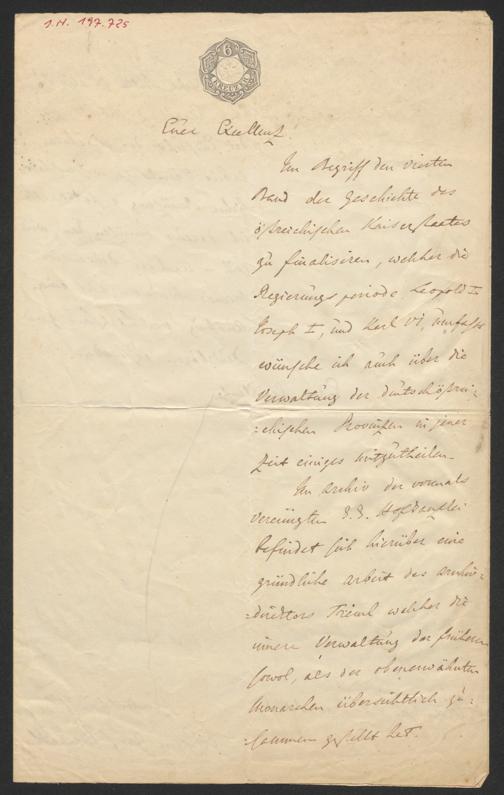 I.N. 197.725
6
KREUZER
Eure Excellenz!
Im Begriff den vierten
Band der Geschichte des
östreichischen Kaiserstaates
zu finalisiren, welcher die
Regierungsperiode Leopold I
Joseph I, und Karl VI, umfasst
wünsche ich auch über die
Verwaltung der deutschöstrei-
=chischen Provinzen in jener
Zeit einiges mitzutheilen.
Im Archiv der vormals
vereinigten k.k. Hofkanzlei
befindet sich hierüber eine
gründliche Arbeit des Archiv-
=direktors welcher die
innere Verwaltung der früheren
sowol, als der obenerwähnten
Monarchen übersichtlich zu-
=sammen gestellt hat.